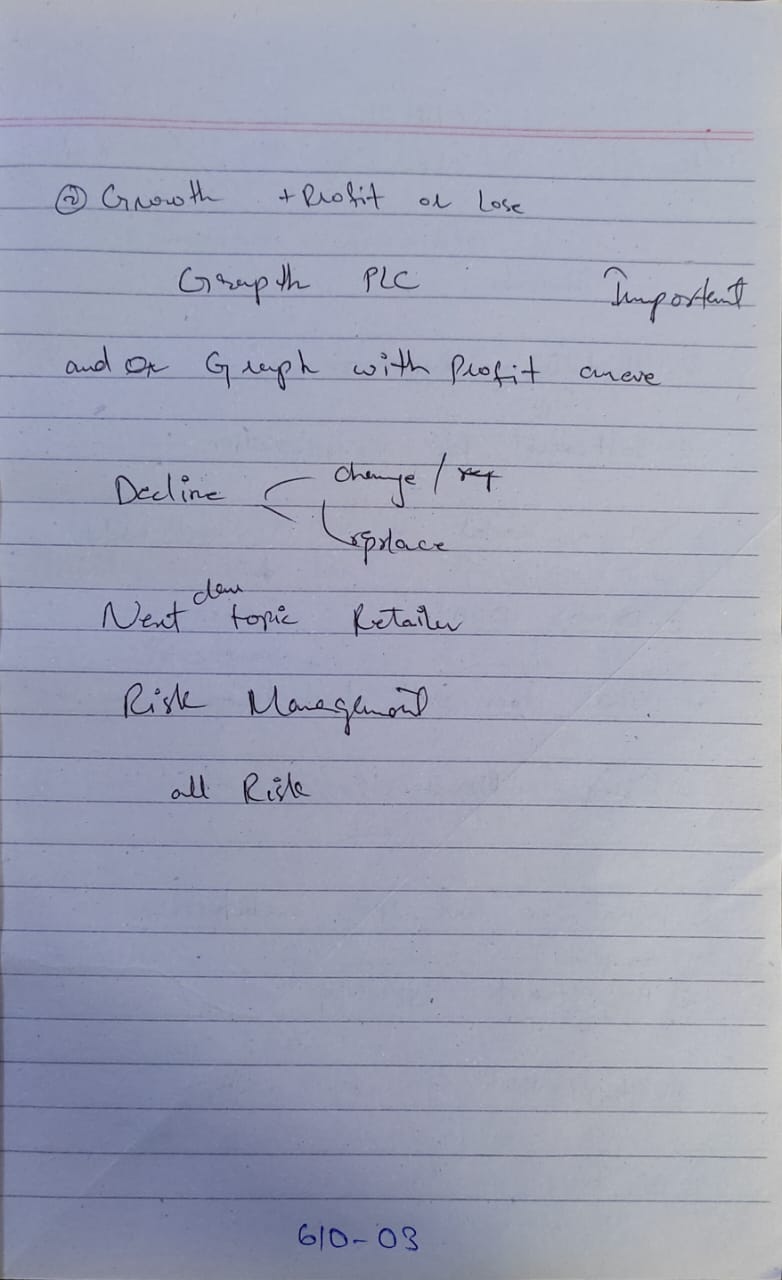 ② Growth + Profit or Lose
Grapth PLC Important
and or Graph with Profit
Decline change /
replace
Next topic Retailer
Risk Management
all Risk
610-03